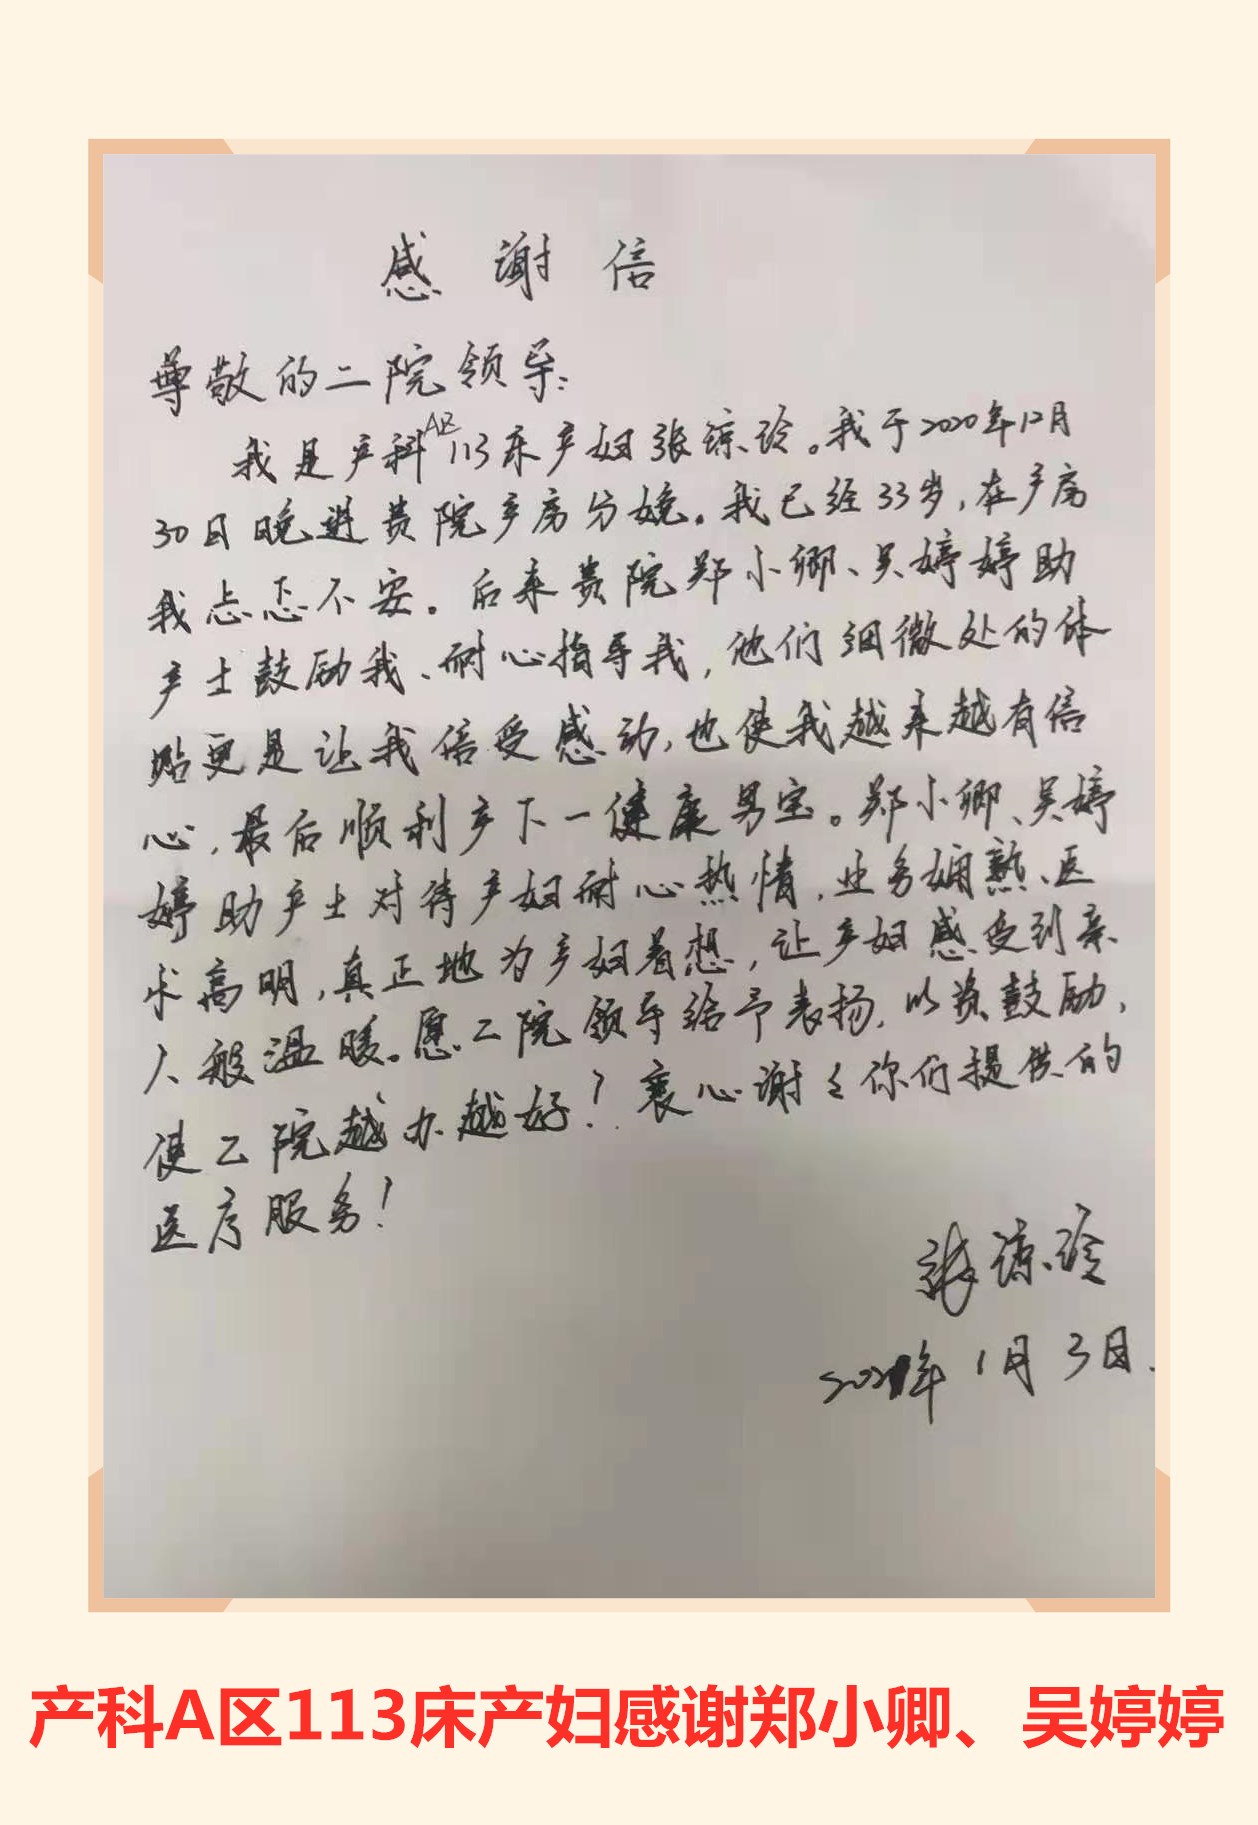 感谢信
尊敬的二院领导：
我是产科A区113床产妇张琼玲。我于2020年12月
30日晚进贵院产房分娩。我已经33岁，在产房
我忐忑不安。后来贵院郑小卿、吴婷婷助
产士鼓励我、耐心指导我，他们细微处的体
贴更是让我倍受感动，也使我越来越有信
心，最后顺利产下一健康男宝。郑小卿、吴婷
婷助产士对待产妇耐心热情，业务娴熟、医
术高明，真正地为产妇着想，让产妇感受到亲
人般温暖。愿二院领导给予表扬，以资鼓励，
使二院越办越好！衷心谢々你们提供的
医疗服务！
张琼玲
2021年1月3日.
产科A区113床产妇感谢郑小卿、吴婷婷